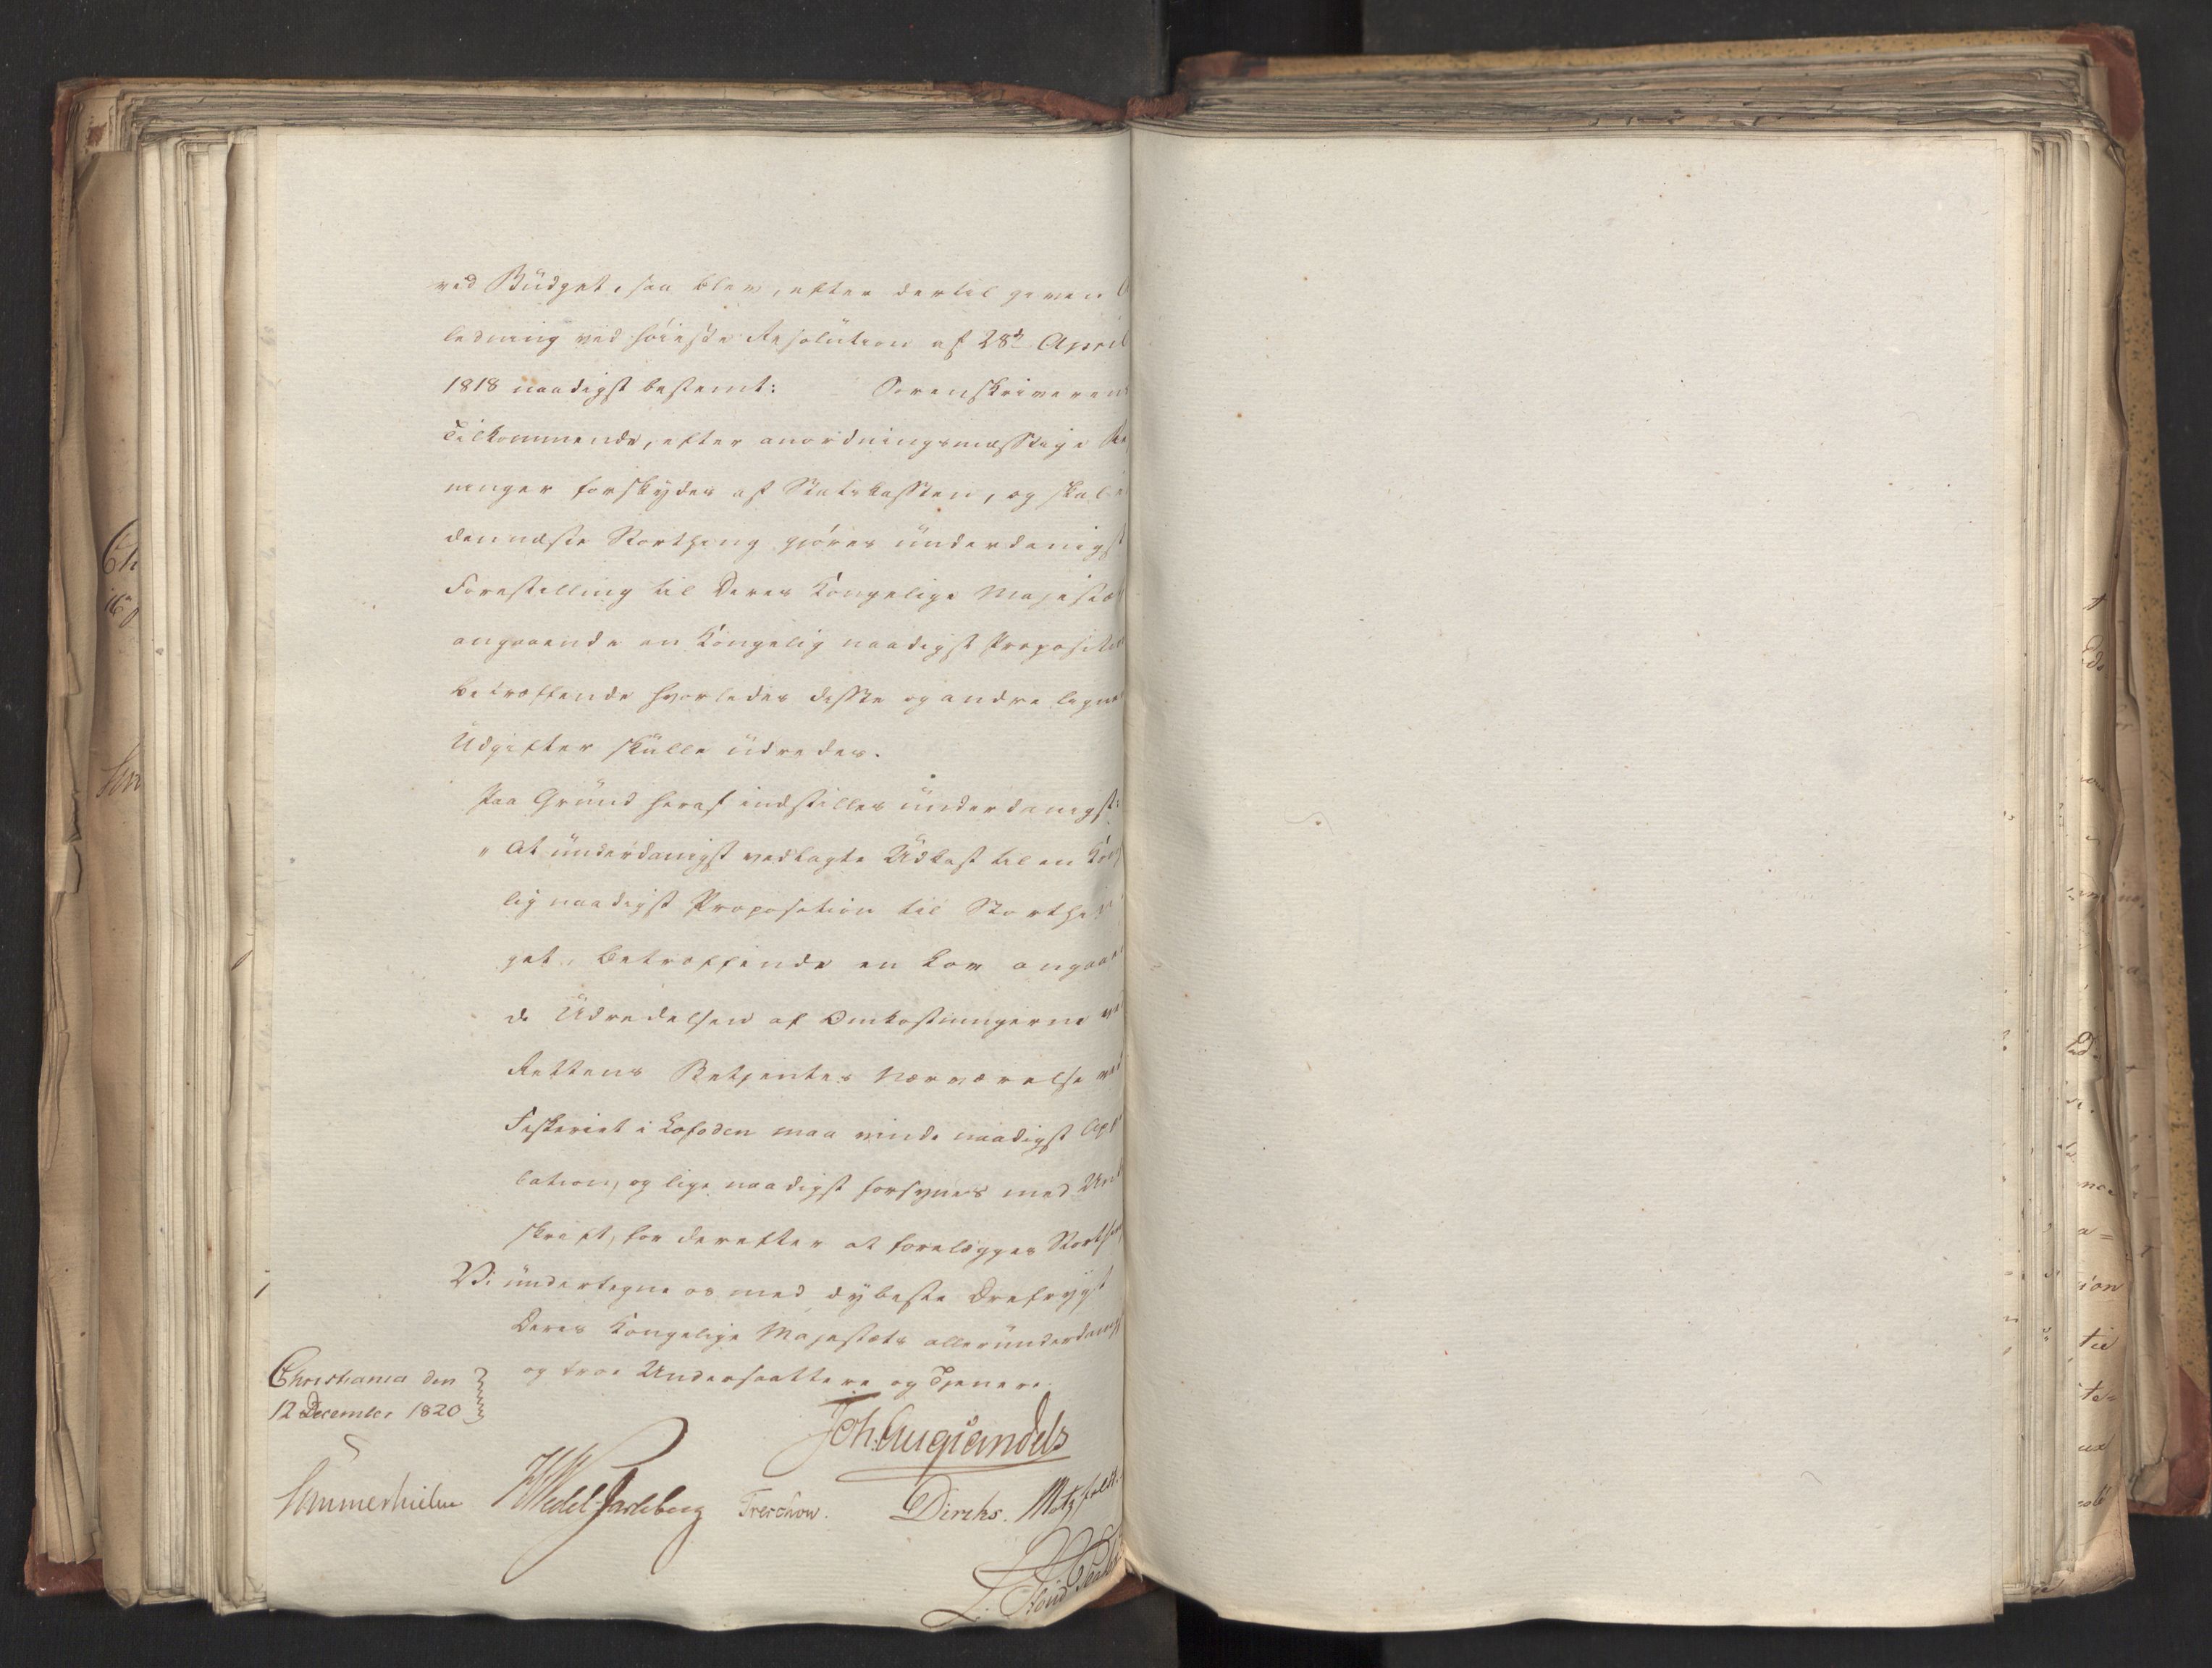 ved Büdget, saa blev, efter dertil given
ledning ved høieste Resolütion af 28de April
1818 naadigst bestemt: Sorenskriverens
Tilkommende, efter anordningsmæssige
ninger forskydes af Statskassen, og skal
den næste Storthing gjøres ünderdanigst
Forestilling til Deres Kongelige Majestæt
angaaende en Kongelig naadigst Proposition
betræffende hvorledes disse og andre lignende
Udgifter skülle üdredes.
Paa Gründ heraf indstilles ünderdanigst:
„At ünderdanigst vedlagte Üdkast til en Konge
lig naadigst Proposition til Storthin
get, betræffende en Lov angaaen
de Üdredelsen af Omkostningerne ved
Rettens Betjentes Nærværelse ved
Fiskeriet i Lofoden maa vinde naadigst App
bation, og lige naadigst forsynes med Und
skrift, for derefter at forelægges Storthing
Vi ündertegne os med dybeste Ærefrygt
Deres Kongelige Majestæts alleründerdanigst
og troe Undersaattere og Tjenere.
Christiania den
12 December 1820
Joh: Aug: Sandels
Sommerhielm HWedel Jarlsberg Treschow. Diriks. Motzfeldt.
L. Stoud Platou